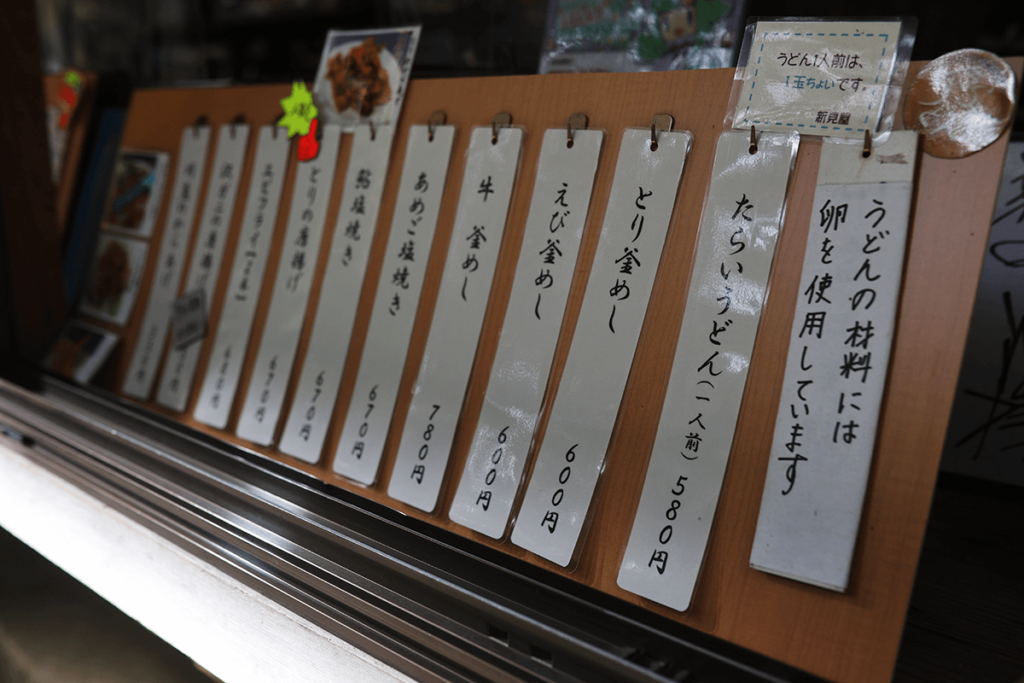 うどん1人前は、
1玉ちょいです。
新見屋
うどんの材料には
卵を使用しています
たらいうどん(一人前)580円
とり釜めし 600円
えび釜めし 600円
牛 釜めし 780円
あめご塩焼き 670円
鮎塩焼き 670円
とりの唐揚げ 670円
エビフライ